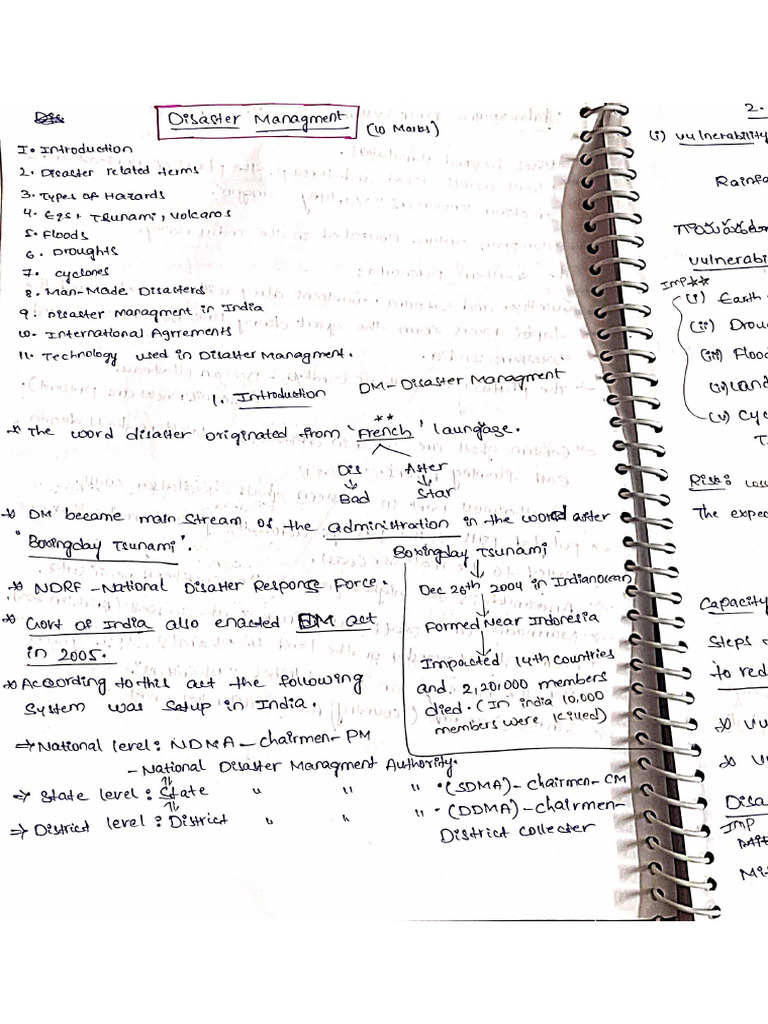 Disaster Managment (10 Marks)
1. Introduction
2. Disaster related terms
3. Types of Hazards
4. Eqs + Tsunami, Volcanos
5. Floods
6. Droughts
7. Cyclones
8. Man-Made Disasters
9. Disaster Managment in India
10. International Agrrements
11. Technology used in Disaster Managment.
DM - Disaster Managment
1. Introduction
* The word disaster originated from 'French' laungage.
Dis Aster
Bad Star
* DM became main stream of the administration in the word after
"Boxingday Tsunami".
Boxingday Tsunami
Dec 26th 2004 in Indianocean
Formed Near Indonesia
Impacted 14th countries
and 2,20,000 members
died. (In india 10,000
members were killed)
* NDRF - National Disaster Response Force.
* Govt of India also enacted DM act
in 2005.
* According to this act the following
system was setup in India.
⇒ National level: NDMA - Chairmen - PM
- National Disaster Managment Authority.
⇒ State level: State " " " (SDMA) - Chairmen - CM
⇒ District level: District " " " (DDMA) - Chairmen -
District collecter
2.
(i) Vulnerability
Rainfa
vulnerabi
Imp**
(i) Earth
(ii) Drou
(iii) Flood
(iv) Land
(v) Cyc
T
Risk:
The expec
Capacity
Steps
to red
* Vu
* V
Disa
Imp
Mi